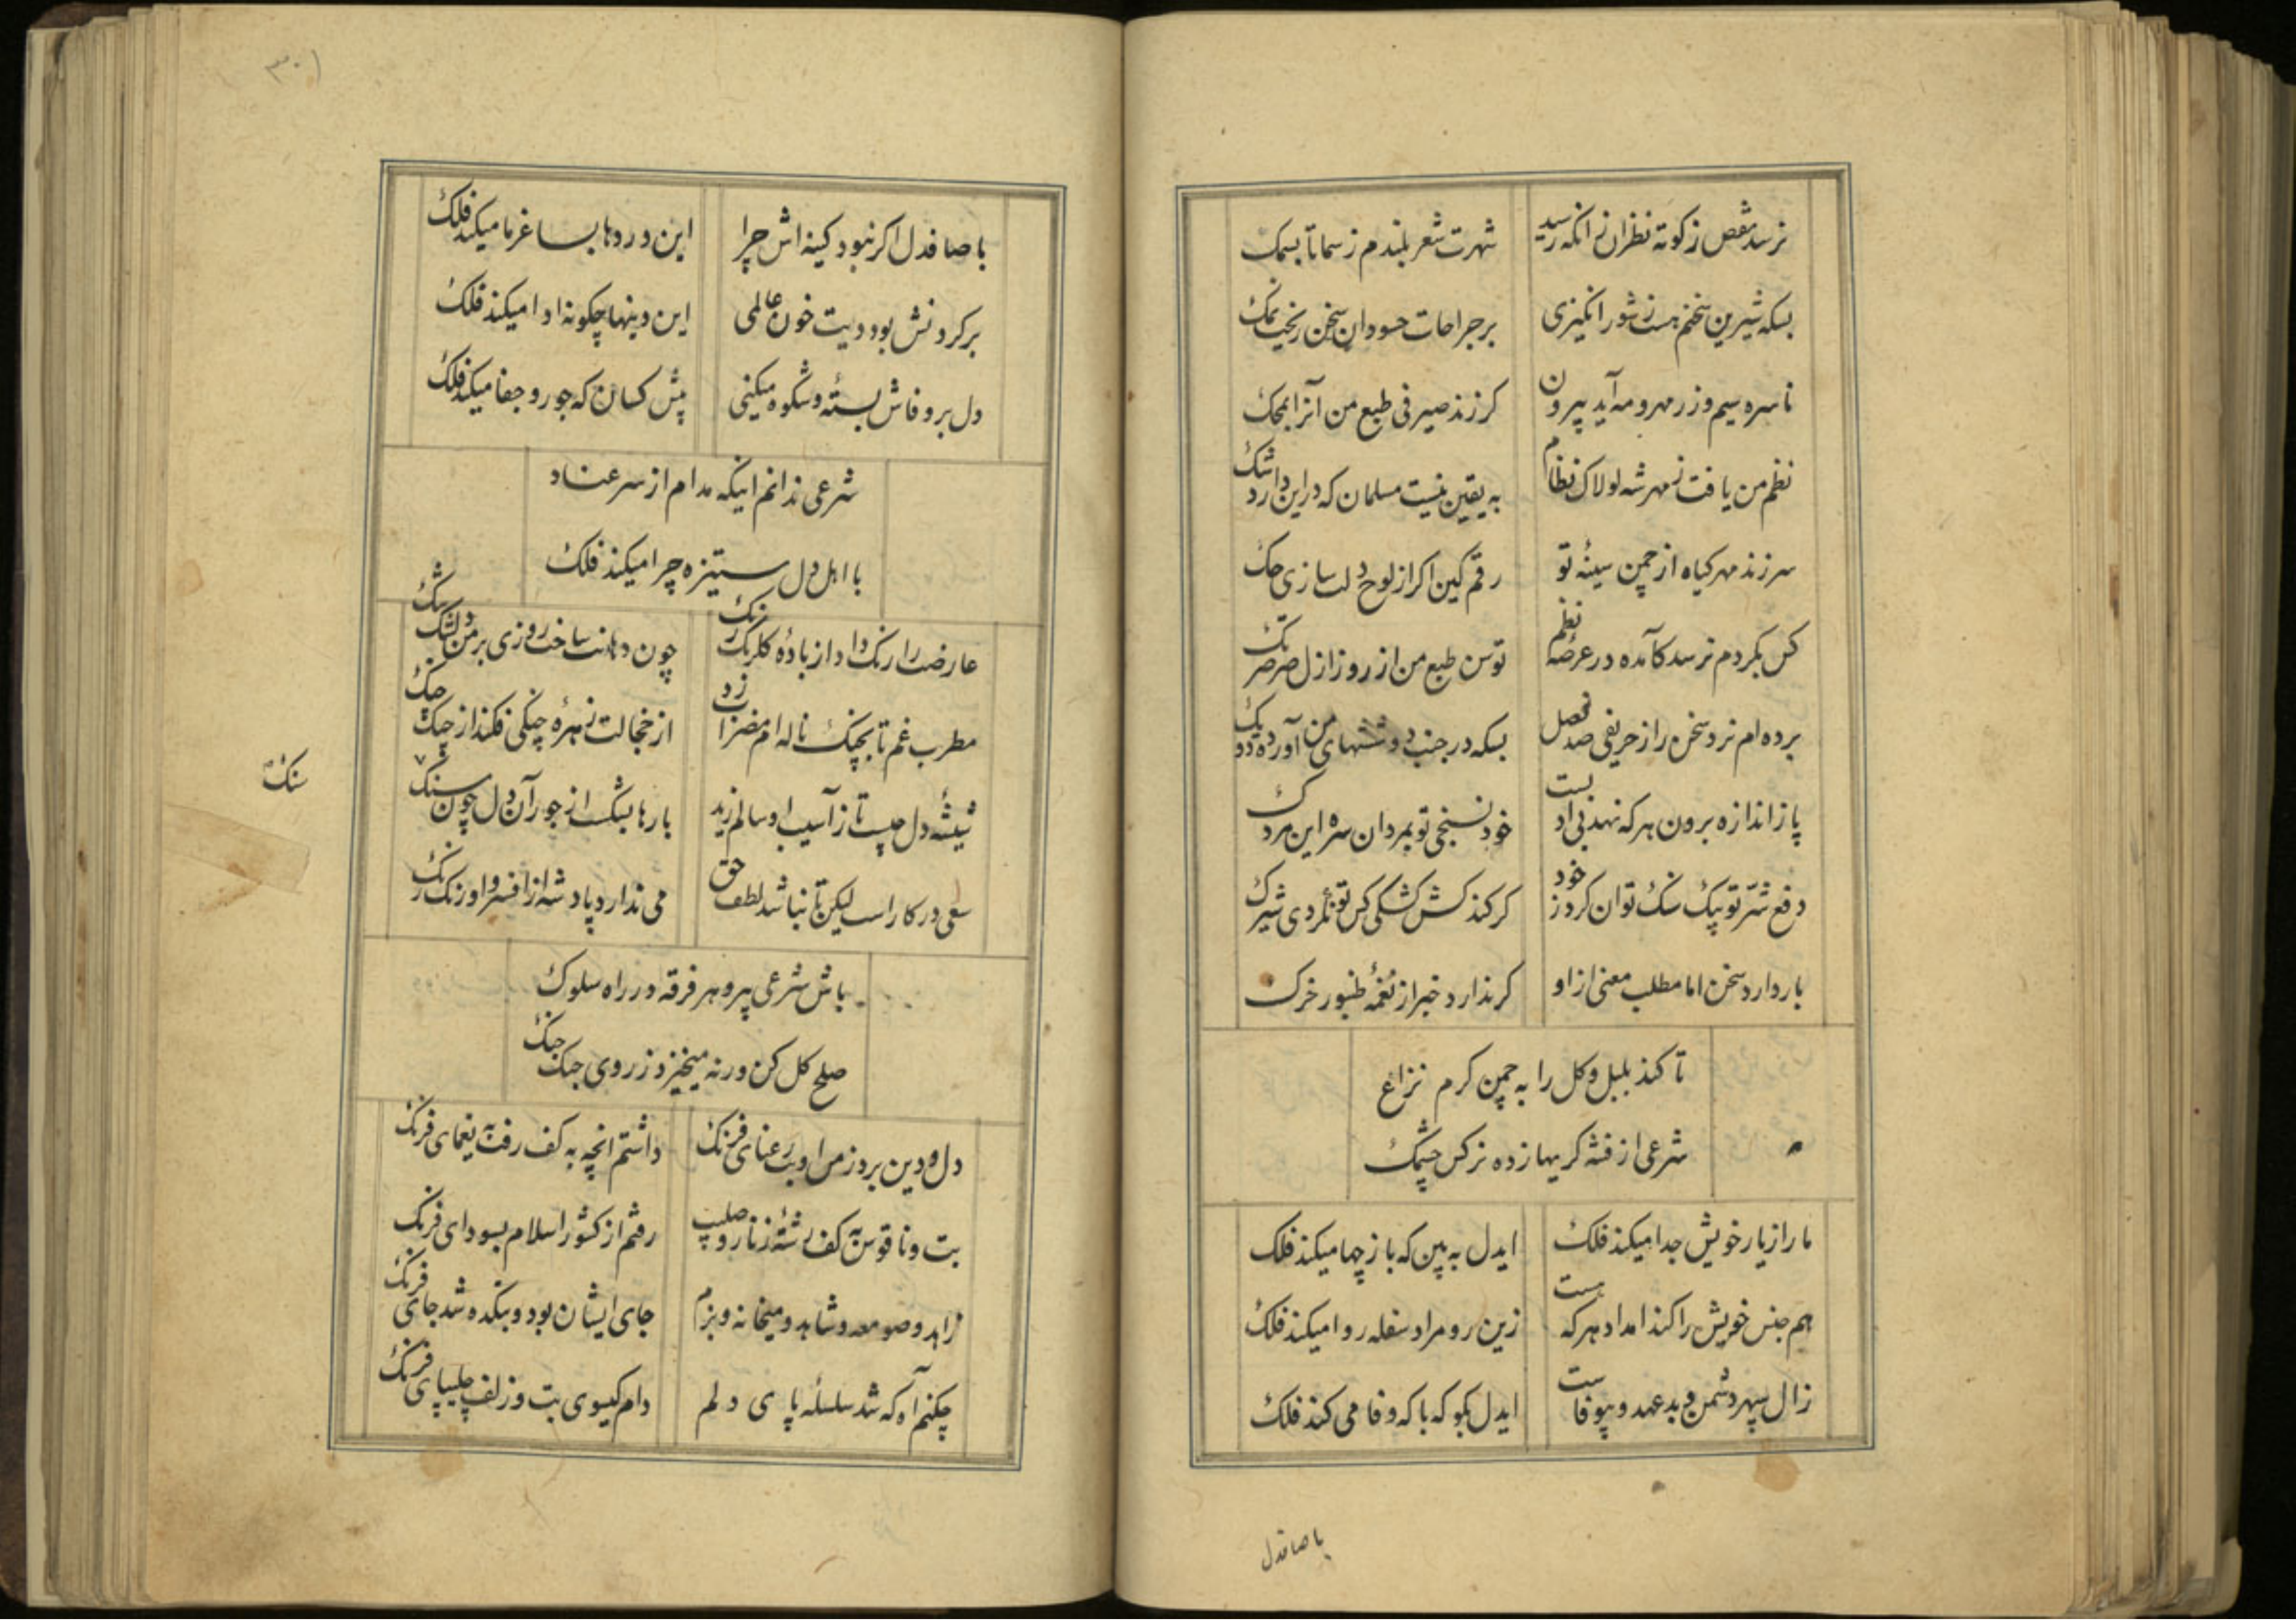 نرسد نقص ز کوته نظران زانکه رسید
شهرت شعر بلندم ز سما تا بسمک
بسکه شیرین سخنم هست ز شور انگیزی
بر جراحات حسودان سخن ریخت نمک
ناسره سیم و زر مهر و مه آید بیرون
کر زند صیرفی طبع من آنرا بمحک
نظم من یافت ز مهر شه لولاک نظام
به یقین نیست مسلمان که در این دارد شک
سر زند مهر کیاه از چمن سینهٔ تو
رقم کین اکر از لوح دلت سازی حک
کس بکردم نرسد کآمده در عرصهٔ نظم
توسن طبع من از روز ازل صرصر تک
برده ام نرد سخن را ز حریفی صد فصل
بسکه در جنب دو ششهای من آورده دو یک
پا ز اندازه برون هرکه نهد بی ادبست
خود نسنجی تو بمردان سره این مردک
دفع شرّ تو بیک سنک توان کرد ز خود
کر کند کش کشکی کس تو نمردی شیرک
بار دارد سخن اما مطلب معنی از او
کر ندارد خبر از نغمهٔ طنبور خرک
تا کند بلبل و کل را به چمن کرم نزاع
شرعی از فتنه کریها زده نرکس چشمک
ما را ز یار خویش جدا میکند فلک
ایدل به بین که باز چها میکند فلک
هم جنس خویش را کند امداد هرکه هست
زین رو مراد سفله روا میکند فلک
زال سپهر دشمن و بد عهد و بیوفاست
ایدل بکو که با که وفا می کند فلک
با صافدل
۳۰۱
با صافدل اکر نبود کینه اش چرا
این دردها بساغر ما میکند فلک
بر کردنش بود دیت خون عالمی
این دینها چکونه ادا میکند فلک
دل بر وفاش بستهٔ و شکوه میکنی
پیش کسان که جور و جفا میکند فلک
شرعی ندانم اینکه مدام از سر عناد
با اهل دل ستیزه چرا میکند فلک
عارضت را رنک داد از بادهٔ کلرنک رنک
چون دهانت ساخت روزی بر من دلتنک تنک
مطرب غم تا بچنک ناله ام مضراب زد
از خجالت زهرهٔ چنکی فکند از چنک چنک
شیشهٔ دل چیست تا ز آسیب او سالم زید
بارها بشکست از جور آن دل چون سنک
سنک
سعی در کار است لیکن تا نباشد لطف حق
می ندارد پادشه از افسر و اورنک رنک
باش شرعی پیرو هر فرقه در راه سلوک
صلح کل کن ورنه میخیزد ز روی جنک جنک
دل و دین برد ز من او بت رعنای فرنک
داشتم انچه به کف رفت به یغمای فرنک
بت و ناقوس به کف رشتهٔ زنار و صلیب
رفتم از کشور اسلام بسودای فرنک
زاهد و صومعه و شاهد و میخانه و بزم
جای ایشان بود و بتکده شد جای فرنک
چکنم آه که شد سلسلهٔ پای دلم
دام کیسوی بت و زلف چلیپای فرنک